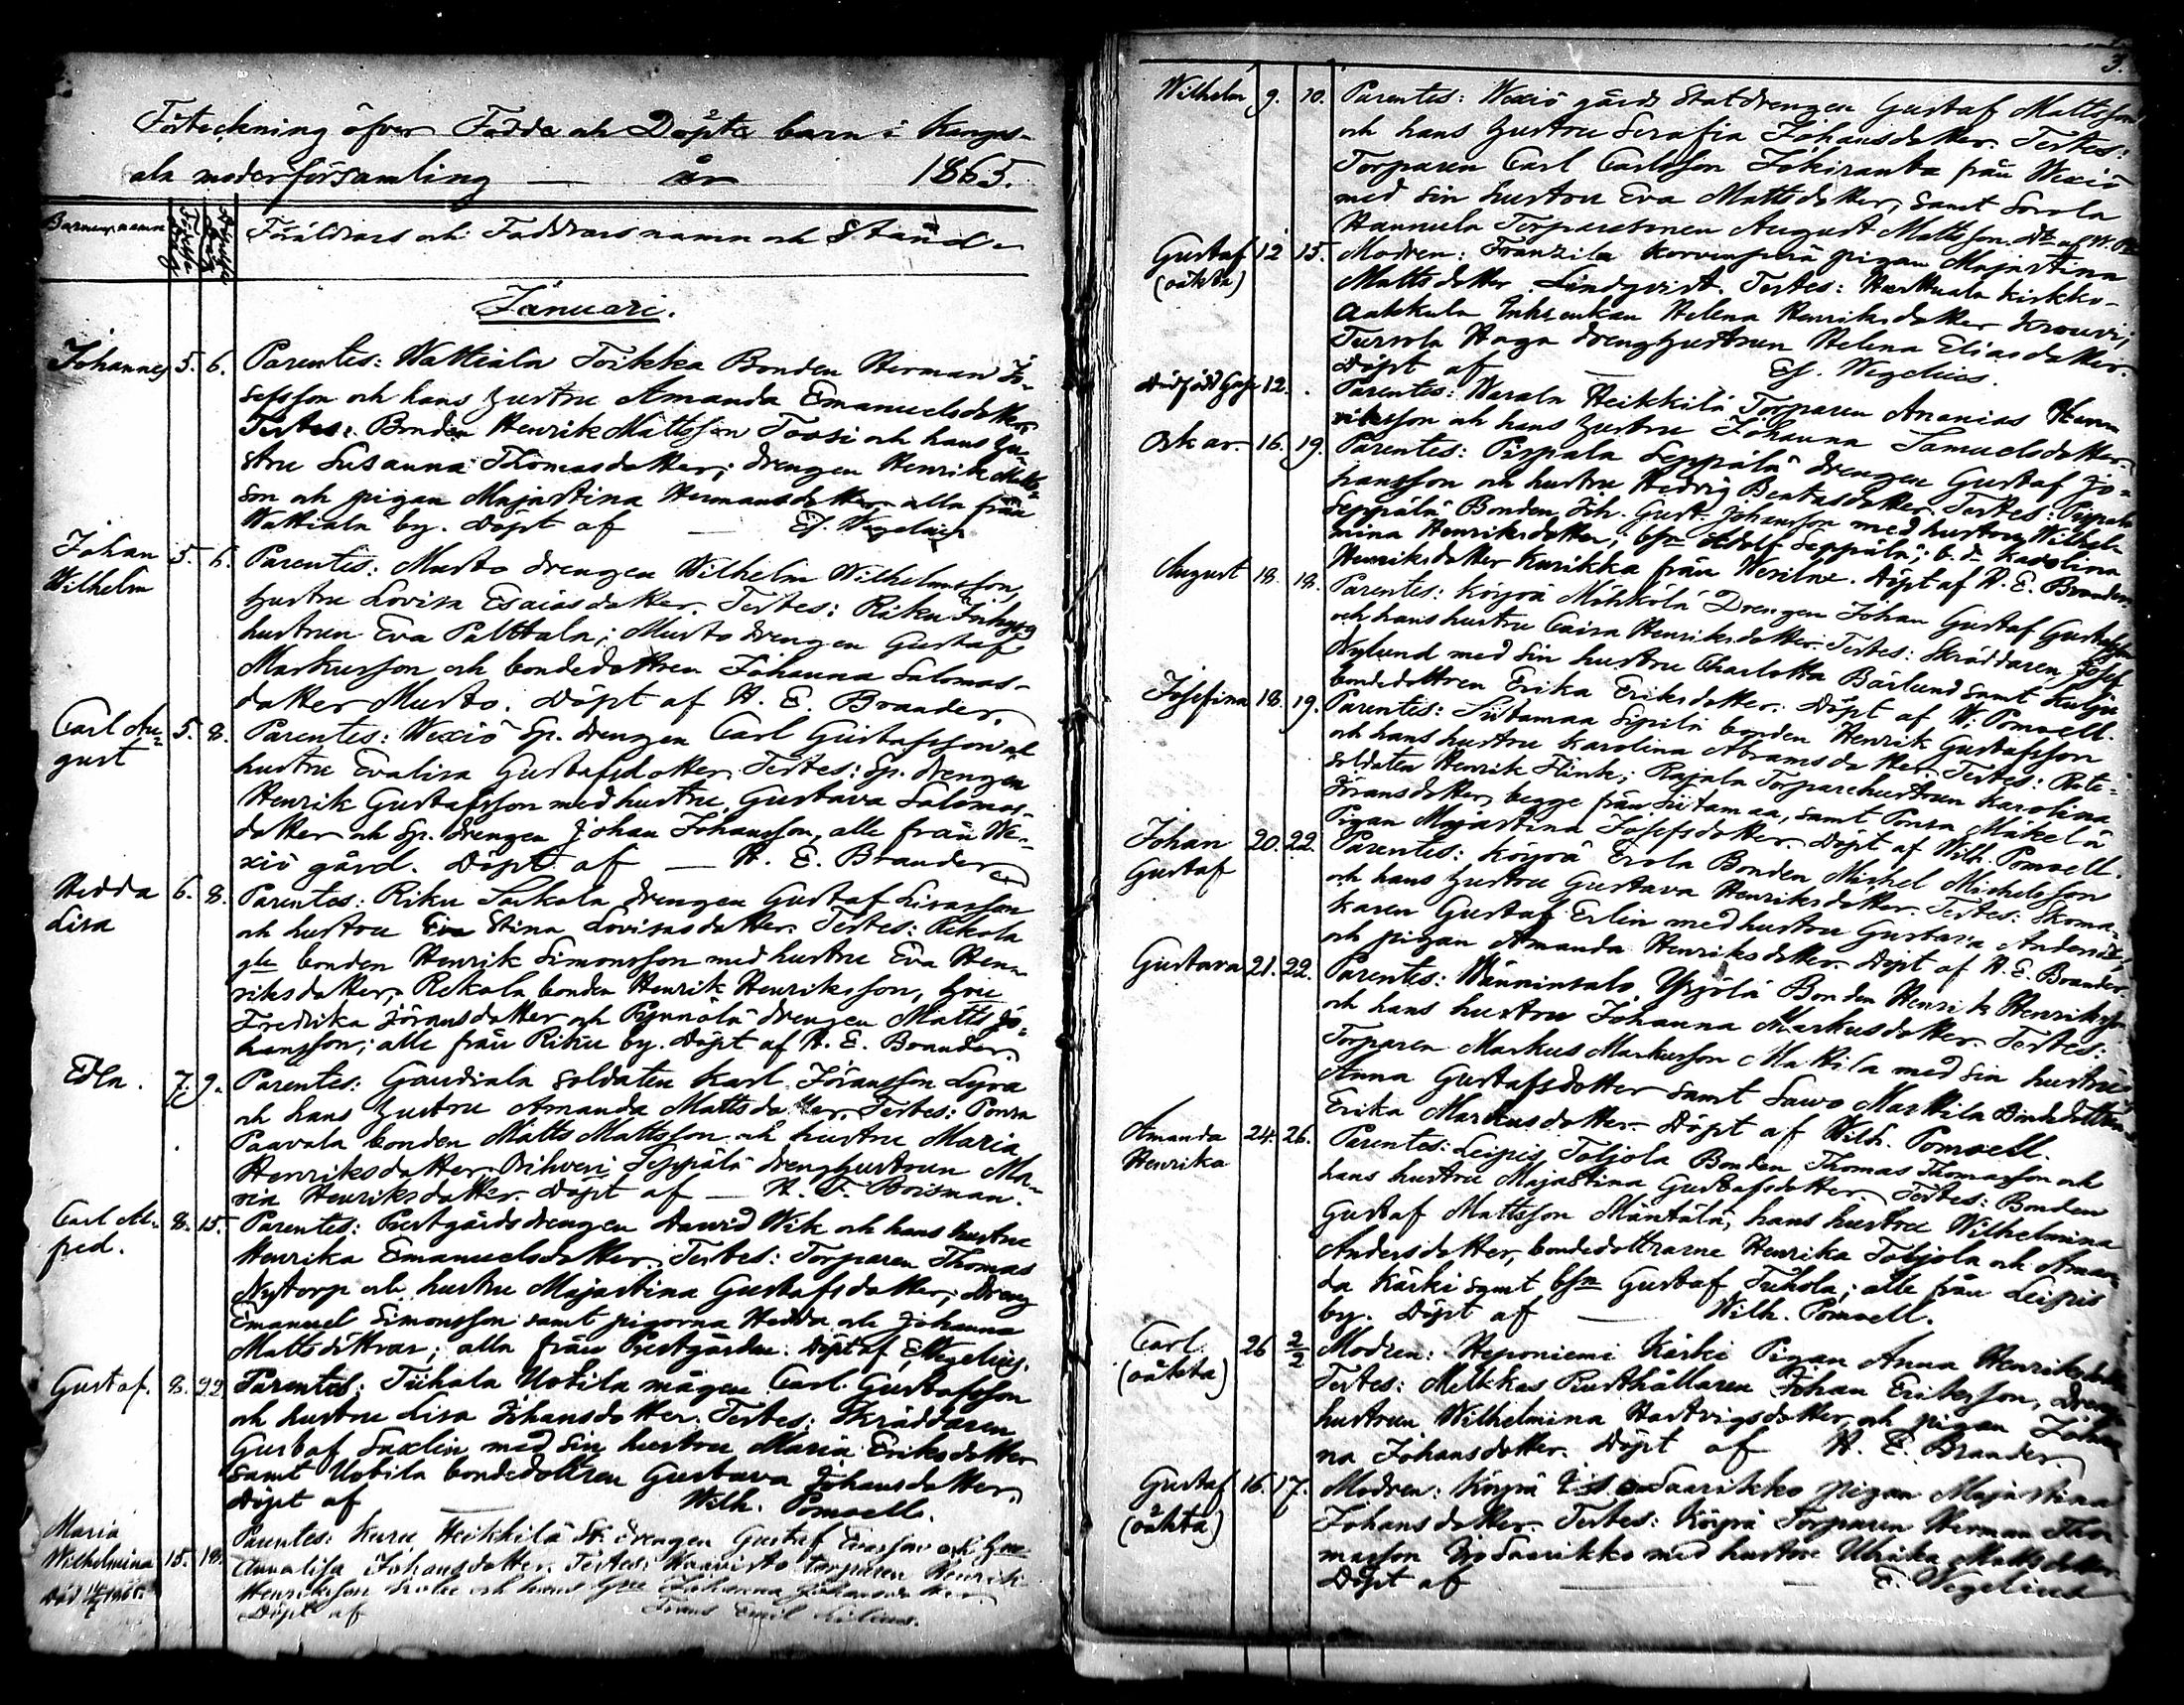 Förteckning öfver Födde och Döpte barn i Kangas-
ala moderförsamling — år 1865.
Barnens namn
Födelse dag
Döpelse dag
Föräldrars och Faddrars namn och Stånd.
Januari.
Johannes 5. 6. Parentes: Wattiala Toikka Bonden Herman Jo-
sefsson och hans hustru Amanda Emanuelsdotter
Testes: Bonden Henrik Mattsson Tossi och hans hu-
stru Susanna Thomasdotter; drengen Henrik Matts-
son och pigan Majastina Hermansdotter, alla från
Wattiala by. Döpt af — Ef. Wegelius
Johan Wilhelm 5. 6. Parentes: Musto drengen Wilhelm Wilhelmsson,
hustru Lovisa Esaiasdotter. Testes: Riku Inhyses
hustrun Eva Palttala; Musto drengen Gustaf
Markusson och bondedottren Johanna Salomos-
dotter Musto. Döpt af H. E. Brander.
Carl Au-
gust 5. 8. Parentes: Wexiö Sp. drengen Carl Gustafsson och
hustru Evalisa Gustafsdotter. Testes: Sp. drengen
Henrik Gustafsson med hustru, Gustava Salomos-
dotter och Sp. drengen Johan Johansson, alle från We-
xiö gård. Döpt af — H. E. Brander
Hedda Lisa 6. 8. Parentes: Riku Sakola drengen Gustaf Lisasson
och hustru Eva Stina Lovisasdotter. Testes: Rekola
gle bonden Henrik Simonsson med hustru Eva Hen-
riksdotter, Rekola bonden Henrik Henriksson, hru
Fredrika Jöransdotter och drengen Matts Jo-
hansson; alle från Riku by. Döpt af H. E. Brander.
Edla. 7. 9. Parentes: Gaudiala soldaten Karl Jöransson Lyra
och hans hustru Amanda Mattsdotter. Testes: Ponsa
Paavala bonden Matts Mattsson och hustru Maria
Henriksdotter, Orihvesi Seppälä drenghustrun Ma-
ria Henriksdotter. Döpt af — H. F. Boisman.
Carl Al-
fred. 8. 15. Parentes: Prestgårds drengen David Wik och hans hustru
Henrika Emanuelsdotter. Testes: Torparen Thomas
Nytorp och hustru Majastina Gustafsdotter; Dreng
Emanuel Simonsson samt pigorna Hedda och Johanna
Mattsdöttrar; alla från Prestgården. Döpt af E. Wegelius.
Gustaf. 8. 22 Parentes: Tiihala Uotila mågen Carl Gustafsson
och hustru Lisa Johansdotter. Testes: Skräddaren
Gustaf Saxlin med sin hustru Maria Eriksdotter
samt Uotila bondedottren Gustava Johansdotter.
Döpt af — Wilh. Pomoell.
Maria
Wilhelmina 15. 18. Parentes: Heikkilä St. drengen Gustaf och hru
Annalisa Johansdotter. Testes: torparen Henrik
Henriksson och hans hru Johanna Johansdotter
Döpt af Frans Emil
3.
Wilhelm 9. 10. Parentes: Wexiö gårds Statdrengen Gustaf Mattsson
och hans hustru Serafia Johansdotter. Testes:
Torparen Carl Carlsson Jokiranta från Wexiö
med sin hustru Eva Mattsdotter, samt Sorola
Hannula Torparesonen August Mattsson.
Gustaf
(oäkta) 12 15. Modren: Franzila Korvenperä pigan Majastina
Mattsdotter Lindqvist. Testes: Herttuala Kirkko-
Aakkula Enkan Helena Henriksdotter Krouvi;
Tursola Haga drenghustrun Helena Eliasdotter.
Döpt af — Ef. Wegelius.
Dödfödd 12. Parentes: Warala Heikkilä Torparen Ananias Hen-
riksson och hans hustru Johanna Samuelsdotter.
Oskar. 16. 19. Parentes: Pispala Seppälä drengen Gustaf Jo-
hansson och hustru Hedvig Beatasdotter. Testes: Pispala
Seppälä Bonden Joh. Gust. Johansson med hustru Wilhel-
mina Henriksdotter, bsn Adolf Seppälä; b. d. Karolina
Henriksdotter Kurikka från Wesilax. Döpt af H. E. Brander.
August 18. 18. Parentes: Köyrä Möhkölä Drengen Johan Gustaf Gustafsson
och hans hustru Caisa Henriksdotter. Testes: Skräddaren Josef
Nylund med sin hustru Charlotta Bärlund samt
bondedottren Erika Eriksdotter. Döpt af W. Pomoell.
Josefina 18. 19. Parentes: Siitamaa Sipilä bonden Henrik Gustafsson
och hans hustru Karolina Abramsdotter. Testes: Rote-
soldaten Henrik Flink; Rajala Torparehustrun Karolina
Jöransdotter, begge från Siitamaa, samt Ponsa Mäkelä
Pigan Majastina Josefsdotter. Döpt af Wilh. Pomoell.
Johan
Gustaf 20. 22. Parentes: Köyrä Erola Bonden Michel Michelsson
och hans hustru Gustava Henriksdotter. Testes: Skoma-
karen Gustaf Erlin med hustru Gustava Andersdr,
och pigan Amanda Henriksdotter. Döpt af H. E. Brander.
Gustava 21. 22. Parentes: Wänninsalo Yrjölä Bonden Henrik Henriksson
och hans hustru Johanna Markusdotter. Testes:
Torparen Markus Markusson Mattila med sin hustru
Anna Gustafsdotter samt Sawo Marttila Bondedottren
Erika Markusdotter. Döpt af Wilh. Pomoell.
Amanda
Henrika 24. 26. Parentes: Leipis Toljola Bonden Thomas Thomasson och
hans hustru Majastina Gustafsdotter. Testes: Bonden
Gustaf Mattsson Mäntälä, hans hustru Wilhelmina
Andersdotter, bondedottrarne Henrika Toljola och Aman-
da Kärki samt bsn Gustaf Tiihola; alle från Leipis
by. Döpt af — Wilh. Pomoell.
Carl
(oäkta) 26 2/2 Modren: Heponiemi Kärki Pigan Anna Henriksdotter
Testes: Melkkas Rusthållaren Johan Eriksson, Dreng-
hustrun Wilhelmina Hartvigsdotter och pigan Johan-
na Johansdotter. Döpt af H. E. Brander.
Gustaf
(oäkta) 16. 17. Modren: Köyrä Saarikko pigan Majastina
Johansdotter. Testes: Köyrä Torparen Herman Tho-
masson Saarikko med hustru Ulrika Mattsdotter.
Döpt af — E. Wegelius